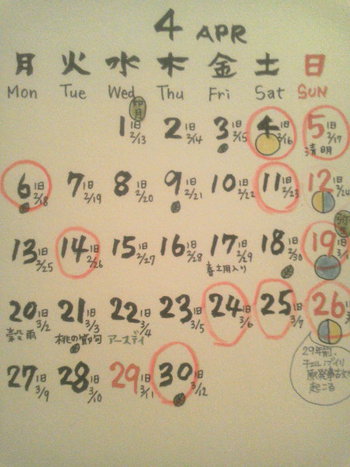 4 APR
月 火 水 木 金 土 日
Mon Tue Wed Thu Fri Sat SUN
1 旧2/13 2 旧2/14 3 旧2/15 4 旧2/16 5 旧2/17
清明
6 旧2/18 7 旧2/19 8 旧2/20 9 旧2/21 10 旧2/22 11 旧2/23 12 旧2/24
13 旧2/25 14 旧2/26 15 旧2/27 16 旧2/28 17 旧2/29 18 旧2/30 19 旧3/1
春土用入り
20 旧3/2 21 旧3/3 22 旧3/4 23 旧3/5 24 旧3/6 25 旧3/7 26
穀雨 桃の節句 アースデイ
27 旧3/9 28 旧3/10 29 旧3/11 30 旧3/12
29年前、
チェルノブイリ
原発事故が
起こる